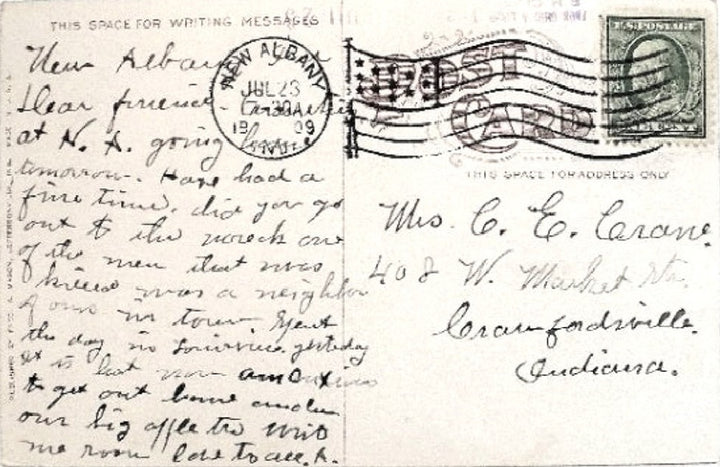 THIS SPACE FOR WRITING MESSAGES
New Albany
Dear friend
at N. A. going home
tomorrow. Have had a
fine time. did you go
out to the wreck one
of the men that was
killed was a neighbor
of ours in town Spent
the day in Louisville yesterday
It is hot now am anxious
to get out home under
our big apple tree Write
me soon love to all. A.
NEW ALBANY
JUL 23
1909
IND.
POST CARD
U.S. POSTAGE
THIS SPACE FOR ADDRESS ONLY
Mrs. C. E. Crane.
408 W. Market St.
Crawfordsville.
Indiana.